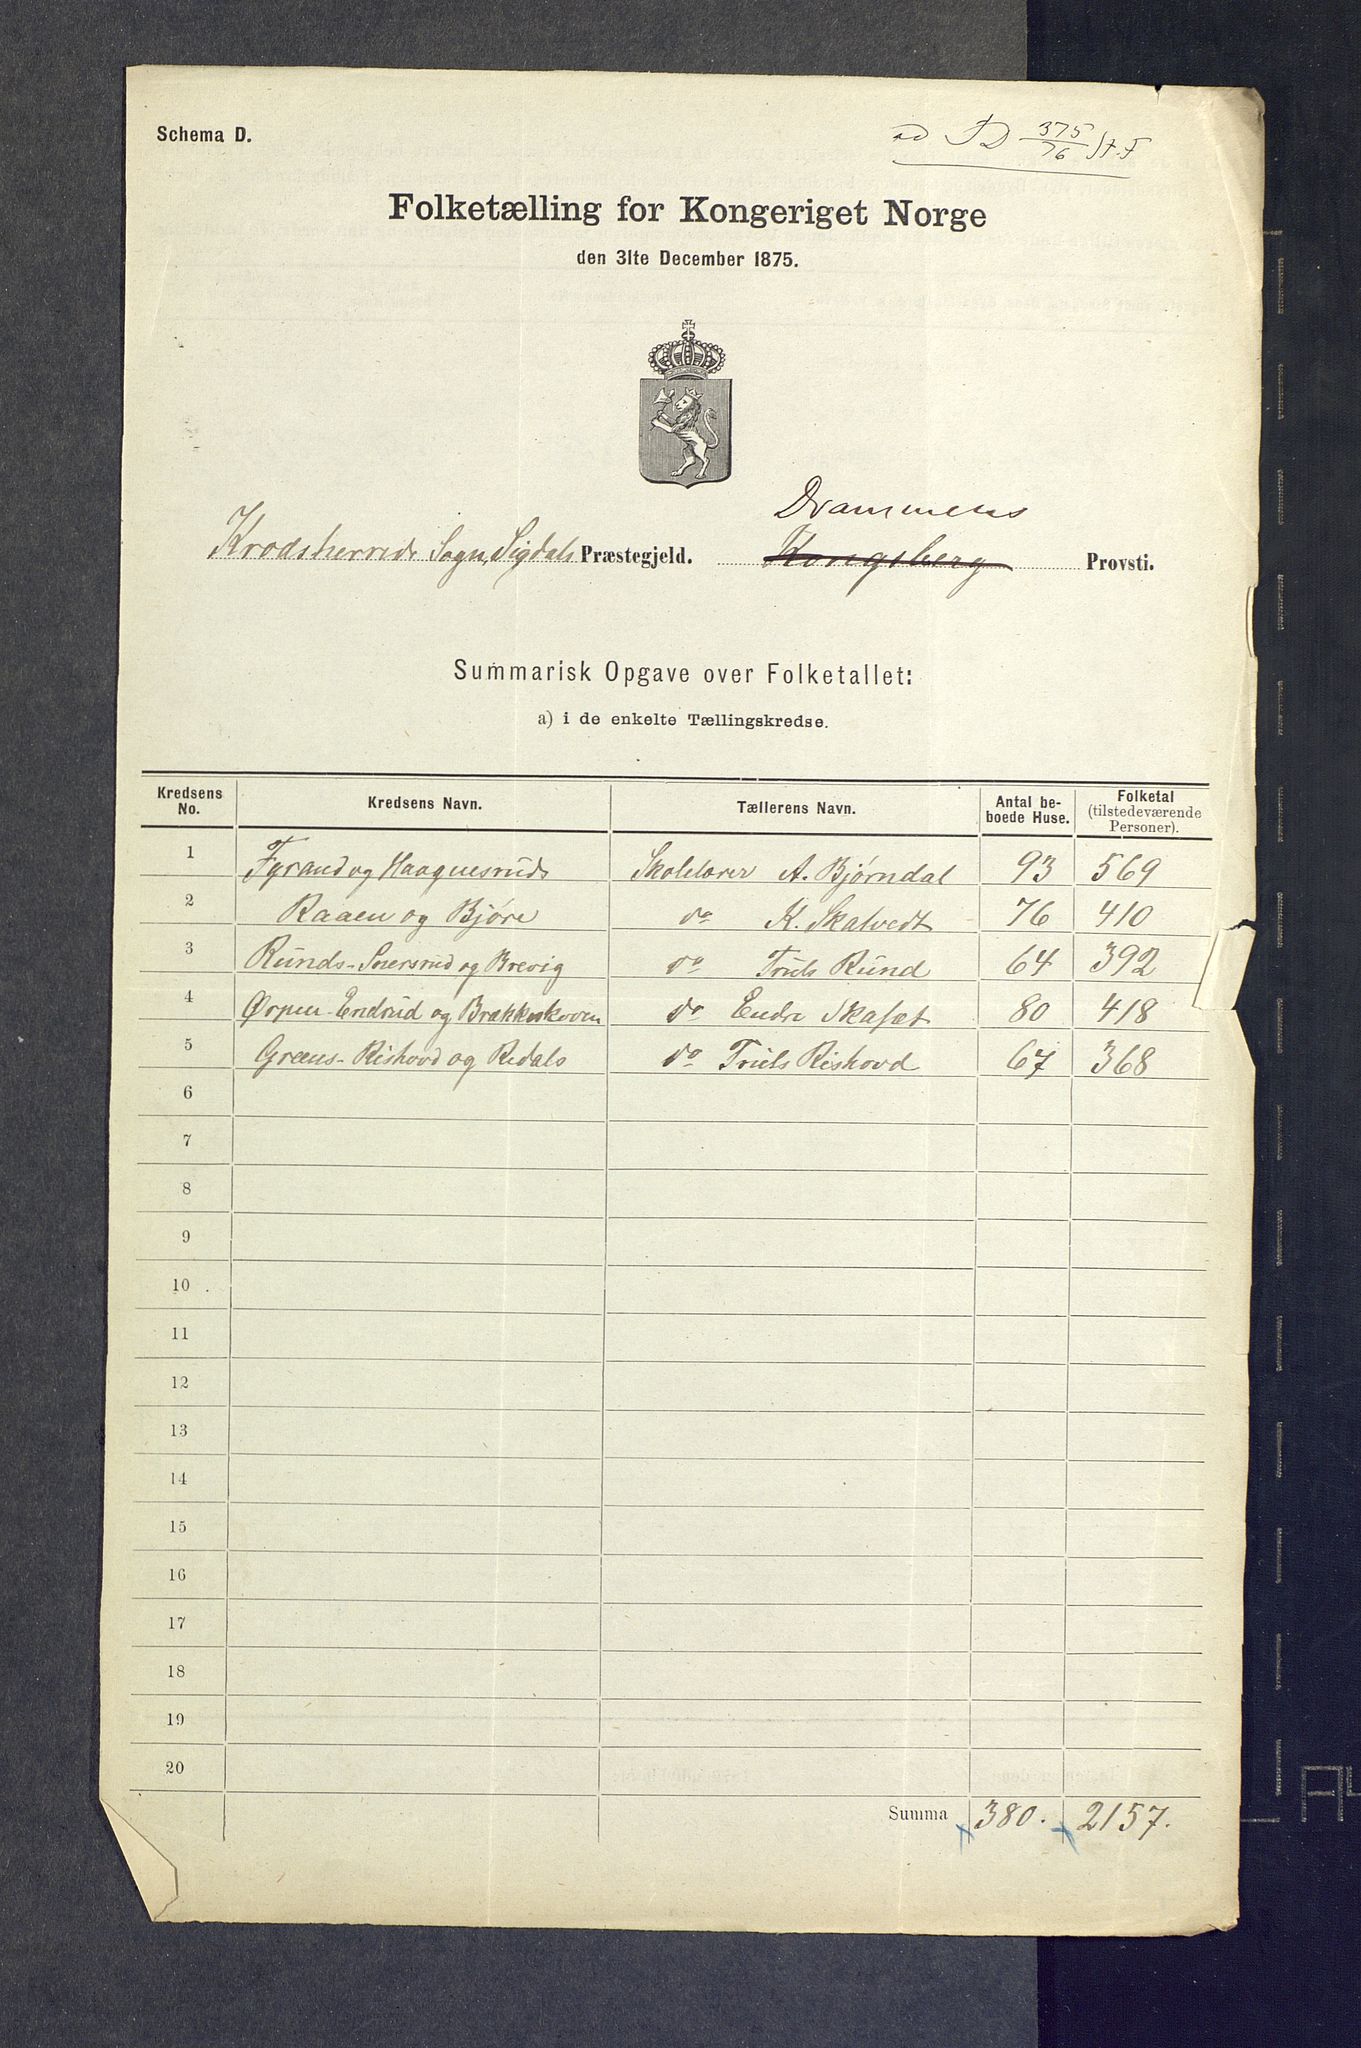 Schema D.
ad JD 375/76 St. F
Folketælling for Kongeriget Norge
den 31te December 1875.
Drammens
Krodsherreds Sogn, Sigdals Præstegjeld. Kongsberg Provsti.
Summarisk Opgave over Folketallet:
a) i de enkelte Tællingskredse.
Kredsens No. Kredsens Navn. Tællerens Navn. Antal beboede Huse. Folketal (tilstedeværende Personer).
1 Fyrand og Haagnesruds Skolelærer A. Bjørndal 93 569
2 Raaen og Bjøre do K. Skalvedt 76 410
3 Runds-Snersrud og Brevig do Truls Rund 64 392
4 Ørpen-Endrud og Brækkeskoven do Endre Skafset 80 418
5 Greens-Rishovd og Redals do Truls Rishovd 67 368
6
7
8
9
10
11
12
13
14
15
16
17
18
19
20
Summa 380. 2157.